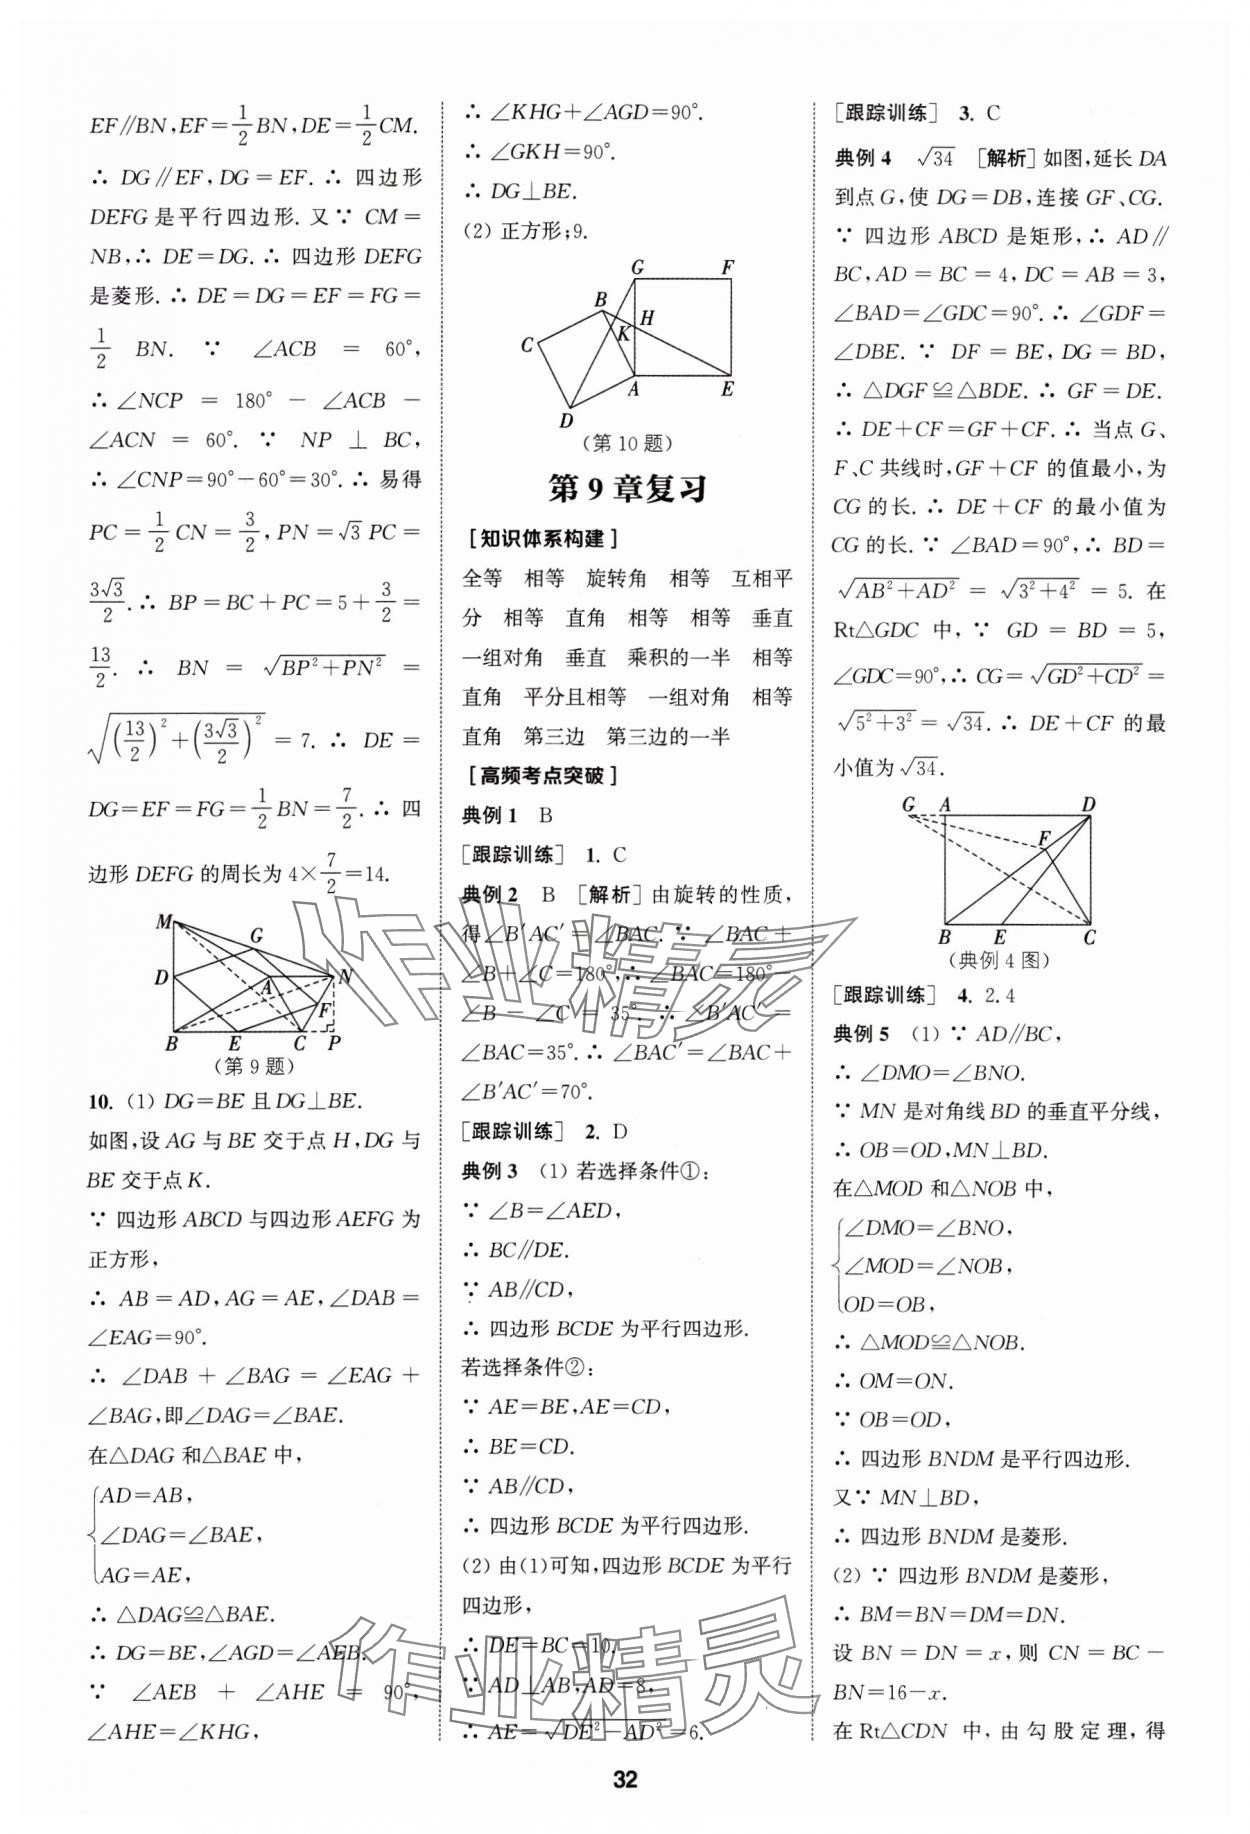 EF∥BN,EF=1/2BN,DE=1/2CM.
∴ DG∥EF,DG=EF.∴ 四边形
DEFG是平行四边形.又∵ CM=
NB,∴ DE=DG.∴ 四边形 DEFG
是菱形.∴ DE=DG=EF=FG=
1/2 BN. ∵ ∠ACB = 60°,
∴ ∠NCP = 180° − ∠ACB −
∠ACN = 60°. ∵ NP ⊥ BC,
∴ ∠CNP=90°−60°=30°.∴ 易得
PC=1/2CN=3/2,PN=√3PC=
3√3/2.∴ BP=BC+PC=5+3/2=
13/2. ∴ BN = √(BP²+PN²) =
√((13/2)²+(3√3/2)²) = 7. ∴ DE =
DG=EF=FG=1/2BN=7/2.∴ 四
边形 DEFG 的周长为 4×7/2=14.
M
G
D
A
N
F
B E C P
(第 9 题)
10. (1) DG=BE 且 DG⊥BE.
如图,设 AG 与 BE 交于点 H,DG 与
BE 交于点 K.
∵ 四边形 ABCD 与四边形 AEFG 为
正方形,
∴ AB = AD,AG = AE,∠DAB =
∠EAG=90°.
∴ ∠DAB + ∠BAG = ∠EAG +
∠BAG,即∠DAG=∠BAE.
在△DAG 和△BAE 中,
{AD=AB,
∠DAG=∠BAE,
AG=AE,
∴ △DAG≌△BAE.
∴ DG=BE,∠AGD=∠AEB.
∵ ∠AEB + ∠AHE = 90°,
∠AHE=∠KHG,
∴ ∠KHG+∠AGD=90°.
∴ ∠GKH=90°.
∴ DG⊥BE.
(2) 正方形;9.
G F
B
H
K
C
A E
D
(第 10 题)
第 9 章复习
[知识体系构建]
全等 相等 旋转角 相等 互相平
分 相等 直角 相等 相等 垂直
一组对角 垂直 乘积的一半 相等
直角 平分且相等 一组对角 相等
直角 第三边 第三边的一半
[高频考点突破]
典例 1 B
[跟踪训练] 1. C
典例 2 B [解析] 由旋转的性质,
得∠B′AC′=∠BAC.∵ ∠BAC+
∠B+∠C=180°,∴ ∠BAC=180°−
∠B − ∠C = 35°. ∴ ∠B′AC′ =
∠BAC=35°.∴ ∠BAC′=∠BAC+
∠B′AC′=70°.
[跟踪训练] 2. D
典例 3 (1) 若选择条件①:
∵ ∠B=∠AED,
∴ BC∥DE.
∵ AB∥CD,
∴ 四边形 BCDE 为平行四边形.
若选择条件②:
∵ AE=BE,AE=CD,
∴ BE=CD.
∵ AB∥CD,
∴ 四边形 BCDE 为平行四边形.
(2) 由(1)可知,四边形 BCDE 为平行
四边形,
∴ DE=BC=10.
∵ AD⊥AB,AD=8,
∴ AE=√(DE²−AD²)=6.
[跟踪训练] 3. C
典例 4 √34 [解析] 如图,延长 DA
到点 G,使 DG=DB,连接 GF、CG.
∵ 四边形 ABCD 是矩形,∴ AD∥
BC,AD = BC = 4,DC = AB = 3,
∠BAD=∠GDC=90°.∴ ∠GDF=
∠DBE. ∵ DF = BE,DG = BD,
∴ △DGF≌△BDE.∴ GF=DE.
∴ DE+CF=GF+CF.∴ 当点 G、
F、C 共线时,GF+CF 的值最小,为
CG 的长.∴ DE+CF 的最小值为
CG 的长.∵ ∠BAD=90°,∴ BD=
√(AB²+AD²) = √(3²+4²) = 5. 在
Rt△GDC 中,∵ GD = BD = 5,
∠GDC=90°,∴ CG=√(GD²+CD²)=
√(5²+3²)=√34.∴ DE+CF 的最
小值为√34.
G A D
F
B E C
(典例 4 图)
[跟踪训练] 4. 2.4
典例 5 (1) ∵ AD∥BC,
∴ ∠DMO=∠BNO.
∵ MN 是对角线 BD 的垂直平分线,
∴ OB=OD,MN⊥BD.
在△MOD 和△NOB 中,
{∠DMO=∠BNO,
∠MOD=∠NOB,
OD=OB,
∴ △MOD≌△NOB.
∴ OM=ON.
∵ OB=OD,
∴ 四边形 BNDM 是平行四边形.
又∵ MN⊥BD,
∴ 四边形 BNDM 是菱形.
(2) ∵ 四边形 BNDM 是菱形,
∴ BM=BN=DM=DN.
设 BN = DN = x,则 CN = BC −
BN=16−x.
在 Rt△CDN 中,由勾股定理,得
作业精灵
作业精灵
32